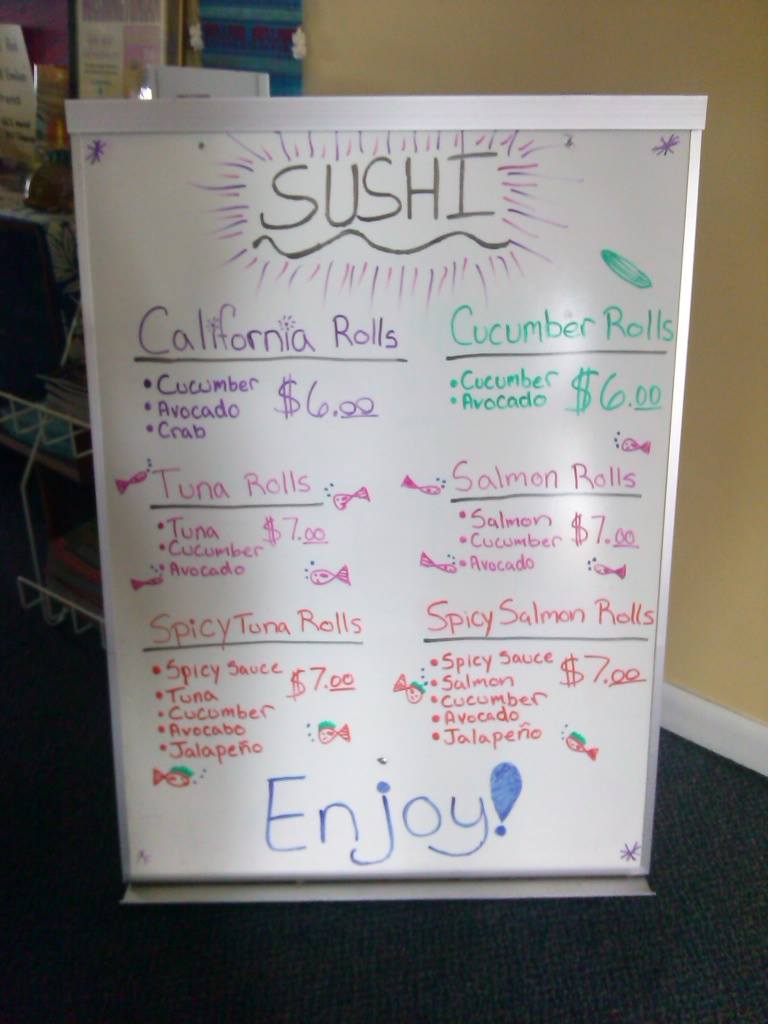 SUSHI
California Rolls
• Cucumber
• Avocado
• Crab
$6.00
Cucumber Rolls
• Cucumber
• Avocado
$6.00
Tuna Rolls
• Tuna
• Cucumber
• Avocado
$7.00
Salmon Rolls
• Salmon
• Cucumber
• Avocado
$7.00
Spicy Tuna Rolls
• Spicy Sauce
• Tuna
• Cucumber
• Avocabo
• Jalapeño
$7.00
Spicy Salmon Rolls
• Spicy Sauce
• Salmon
• Cucumber
• Avocado
• Jalapeño
$7.00
Enjoy!